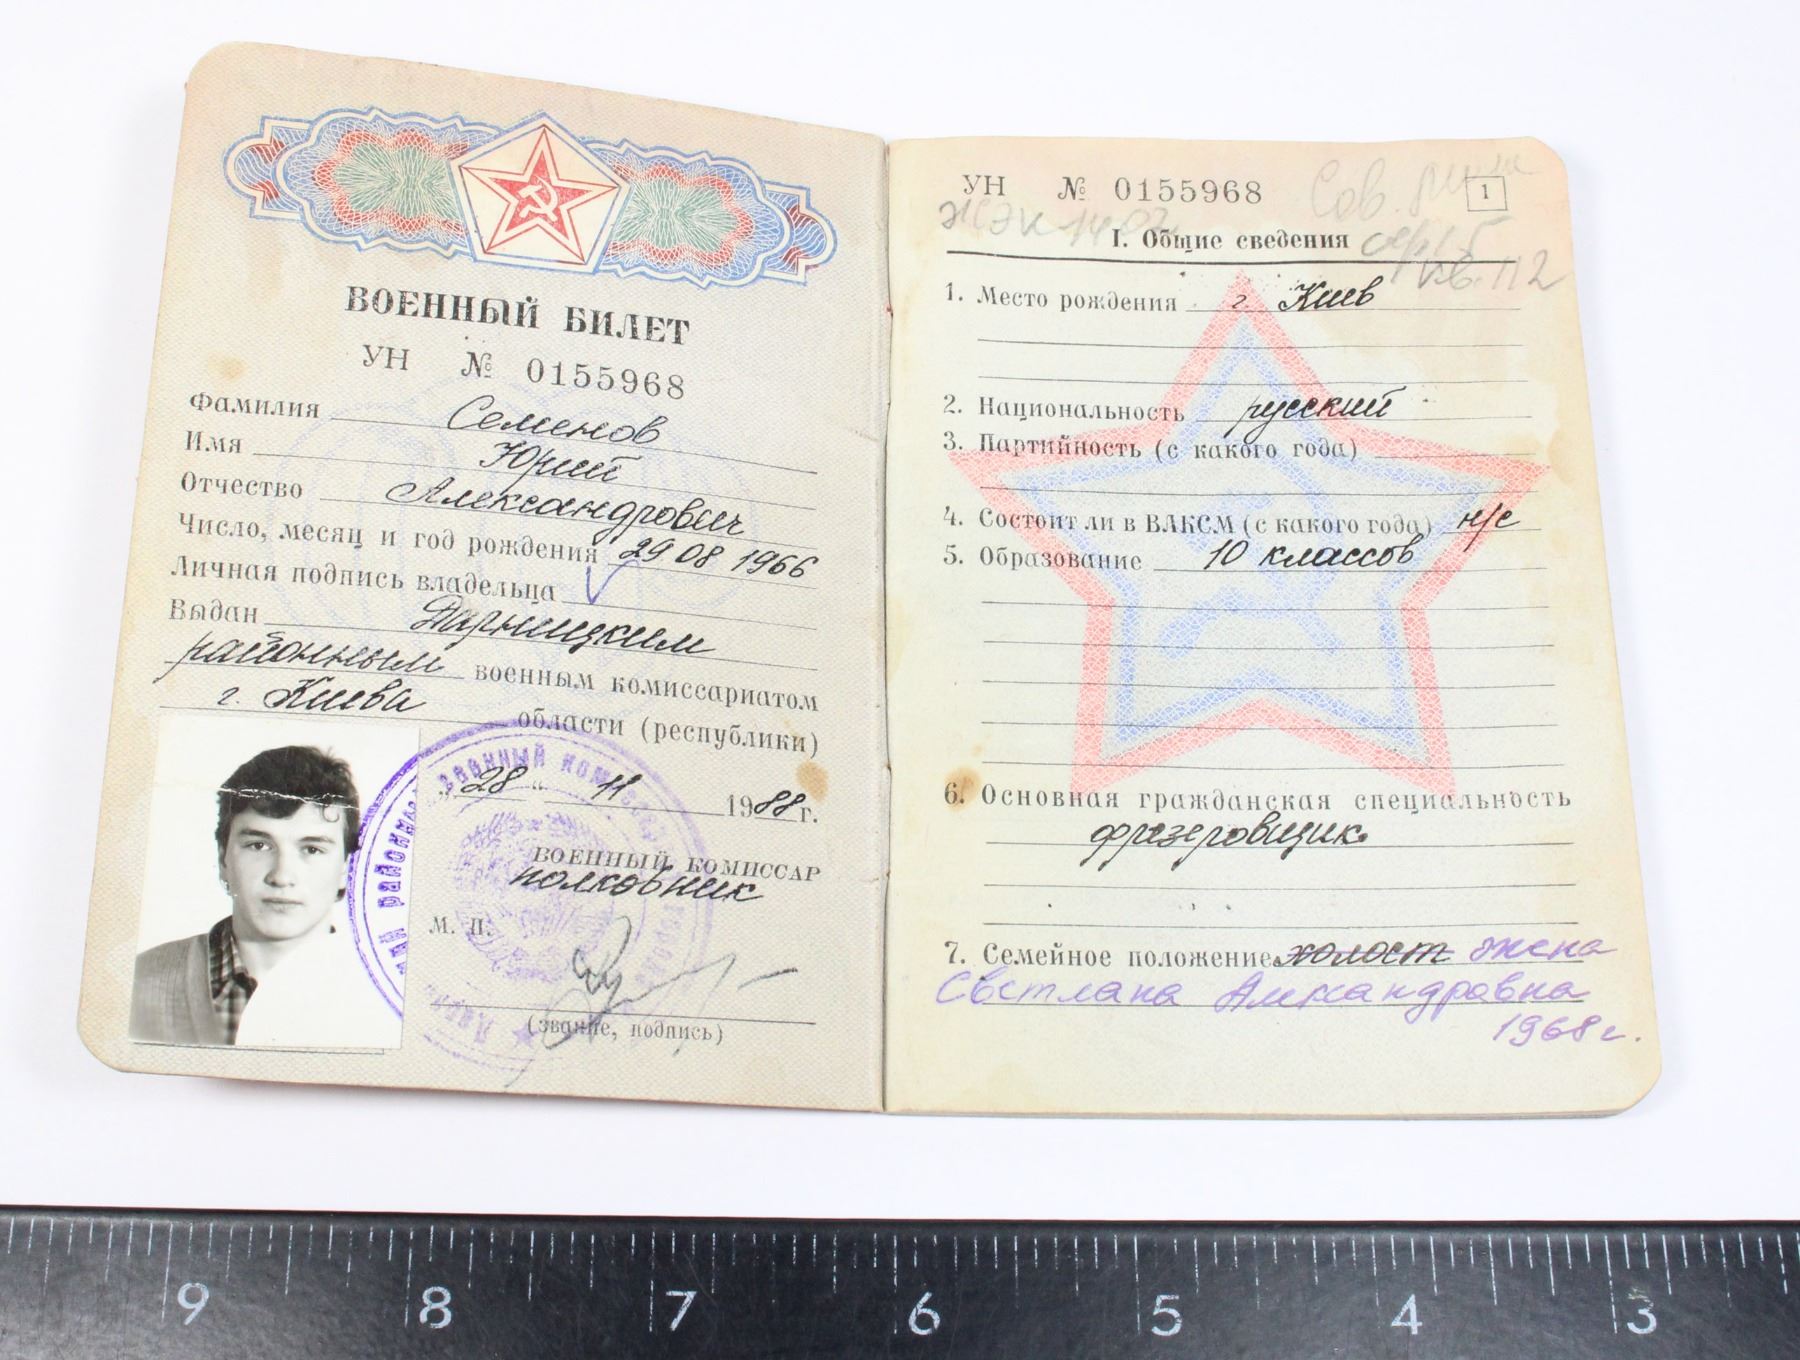 ВОЕННЫЙ БИЛЕТ
УН № 0155968
Фамилия Семенов
Имя Юрий
Отчество Александрович
Число, месяц и год рождения 29.08 1966
Личная подпись владельца
Выдан Дарницким
районным военным комиссариатом
г. Киева области (республики)
„28“ 11 1988 г.
ВОЕННЫЙ КОМИССАР
полковник
М. П.
(звание, подпись)
УН № 0155968
1
ЖЭК 1407
I. Общие сведения
кв. 112
1. Место рождения г. Киев
2. Национальность русский
3. Партийность (с какого года)
4. Состоит ли в ВЛКСМ (с какого года) н/с
5. Образование 10 классов
6. Основная гражданская специальность
фрезеровщик
7. Семейное положение холост жена
Светлана Александровна
1968 г.
9 8 7 6 5 4 3